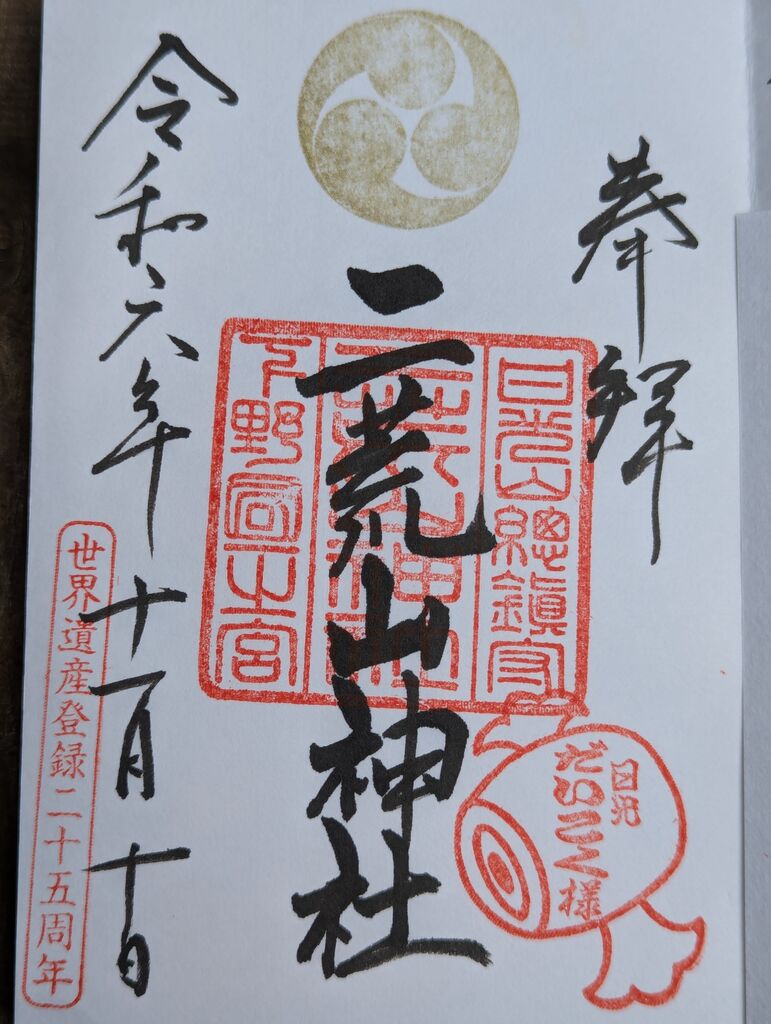 奉拝
日光山總鎮守
二荒山神社
下野國一宮
二荒山神社
日光
だいこく様
令和六年十一月十日
世界遺産登録二十五周年